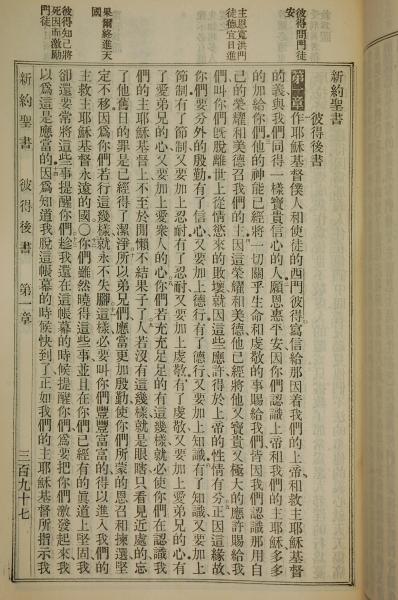 新約聖書
彼得後書
第一章作耶穌基督僕人和使徒的西門彼得寫信給那因着我們的上帝和救主耶穌基督
的義與我們同得一樣寶貴信心的人願恩惠平安因你們認識上帝和我們的主耶穌多多
的加給你們他的神能已經將一切關乎生命和虔敬的事賜給我們皆因我們認識那用自
己的榮耀和美德召我們的主因這榮耀和美德他已經將他又寶貴又極大的應許賜給我
們叫你們旣脫離世上從情慾來的敗壞就因這些應許得於上帝的性情有分正因這緣故
你們要分外的殷勤有了信心又要加上德行有了德行又要加上知識有了知識又要加上
節制有了節制又要加上忍耐有了忍耐又要加上虔敬有了虔敬又要加上愛弟兄的心有
了愛弟兄的心又要加上愛衆人的心你們若充充足足的有這幾樣就必使你們在認識我
們的主耶穌基督上不至於閒懶不結果子了人若沒有這幾樣就是眼瞎只看見近處的忘
了他舊日的罪是已經得了潔淨所以弟兄們應當更加殷勤使你們所蒙的恩召和揀選堅
定不移因爲你們若行這幾樣就永不失腳這樣必要叫你們豐豐富富的得以進入我們的
主救主耶穌基督永遠的國〇你們雖然曉得這些事並且在你們已經有的眞道上堅固我
卻還要常將這些事提醒你們趁我還在這帳幕的時候提醒你們爲要把你們激發起來我
以爲這是應當的因爲知道我脫這帳幕的時候快到了正如我們的主耶穌基督所指示我
彼得問門徒
安
主恩寬洪門
徒德宜日進
果爾終進天
國
彼得知己將
死因而激勵
門徒
新約聖書 彼得後書 第一章 三百九十七